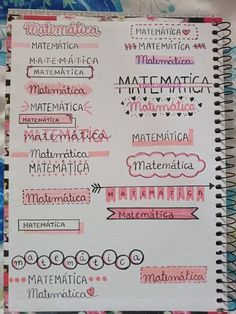 Matemática
MATEMÁTICA
MATEMÁTICA
MATEMÁTICA
Matemática
MATEMÁTICA
MATEMÁTICA
MATEMÁTICA
Matemática
MATEMÁTICA
Matemática
MATEMÁTICA
matemática
MATEMÁTICA
Matemática
MATEMÁTICA
MATEMÁTICA
Matemática
MATEMÁTICA
Matemática
MATEMÁTICA
Matemática
MATEMÁTICA
MATEMÁTICA
Matemática